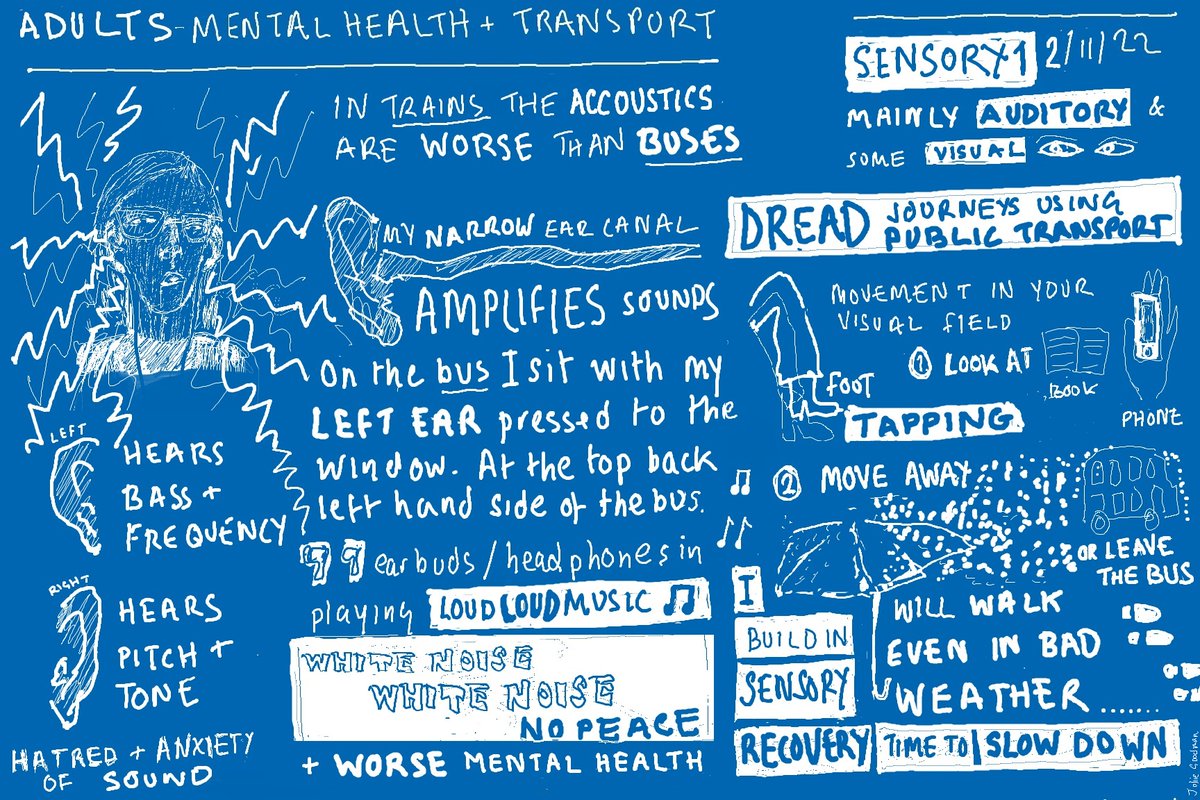 ADULTS - MENTAL HEALTH + TRANSPORT
SENSORY 1 2/11/22
MAINLY AUDITORY &
SOME VISUAL
IN TRAINS THE ACCOUSTICS
ARE WORSE THAN BUSES
MY NARROW EAR CANAL
AMPLIFIES SOUNDS
On the bus I sit with my
LEFT EAR pressed to the
window. At the top back
left hand side of the bus.
earbuds / headphones in
playing LOUD LOUD MUSIC
WHITE NOISE
WHITE NOISE
NO PEACE
+ WORSE MENTAL HEALTH
LEFT
HEARS
BASS +
FREQUENCY
RIGHT
HEARS
PITCH +
TONE
HATRED + ANXIETY
OF SOUND
DREAD JOURNEYS USING
PUBLIC TRANSPORT
MOVEMENT IN YOUR
VISUAL FIELD
① LOOK AT
BOOK
PHONE
FOOT
TAPPING
② MOVE AWAY
OR LEAVE
THE BUS
I
WILL WALK
EVEN IN BAD
WEATHER.......
BUILD IN
SENSORY
RECOVERY TIME TO SLOW DOWN
Jolie Goodman